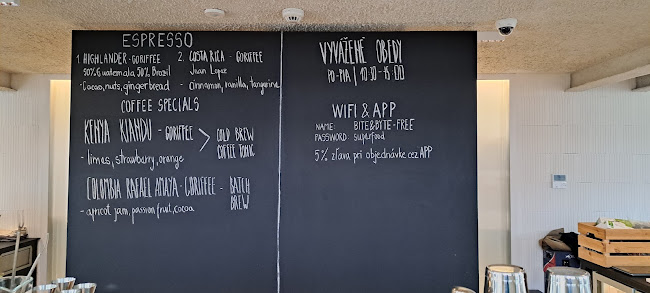 ESPRESSO
1. HIGHLANDER - GORIFFEE
50% Guatemala, 50% Brazil
- Cocoa, nuts, gingerbread
2. COSTA RICA - GORIFFEE
Juan Lopez
- Cinnamon, vanilla, tangerine
COFFEE SPECIALS
KENYA KIANDU - GORIFFEE > COLD BREW
COFFEE TONIC
- limes, strawberry, orange
COLOMBIA RAFAEL AMAYA - GORIFFEE - BATCH
BREW
- apricot jam, passion fruit, cocoa
VYVÁŽENÉ OBEDY
PO-PIA | 10:30-15:00
WIFI & APP
NAME: BITE&BYTE-FREE
PASSWORD: superfood
5% zľava pri objednávke cez APP